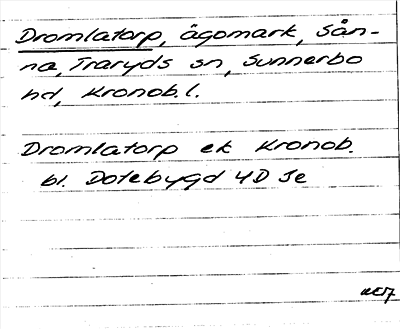 Dromlatorp, ägomark, Sån-
na, Traryds sn, Sunnerbo
hd, Kronob. l.
Dromlatorp ek Kronob.
bl. Dotebygd 4D Se